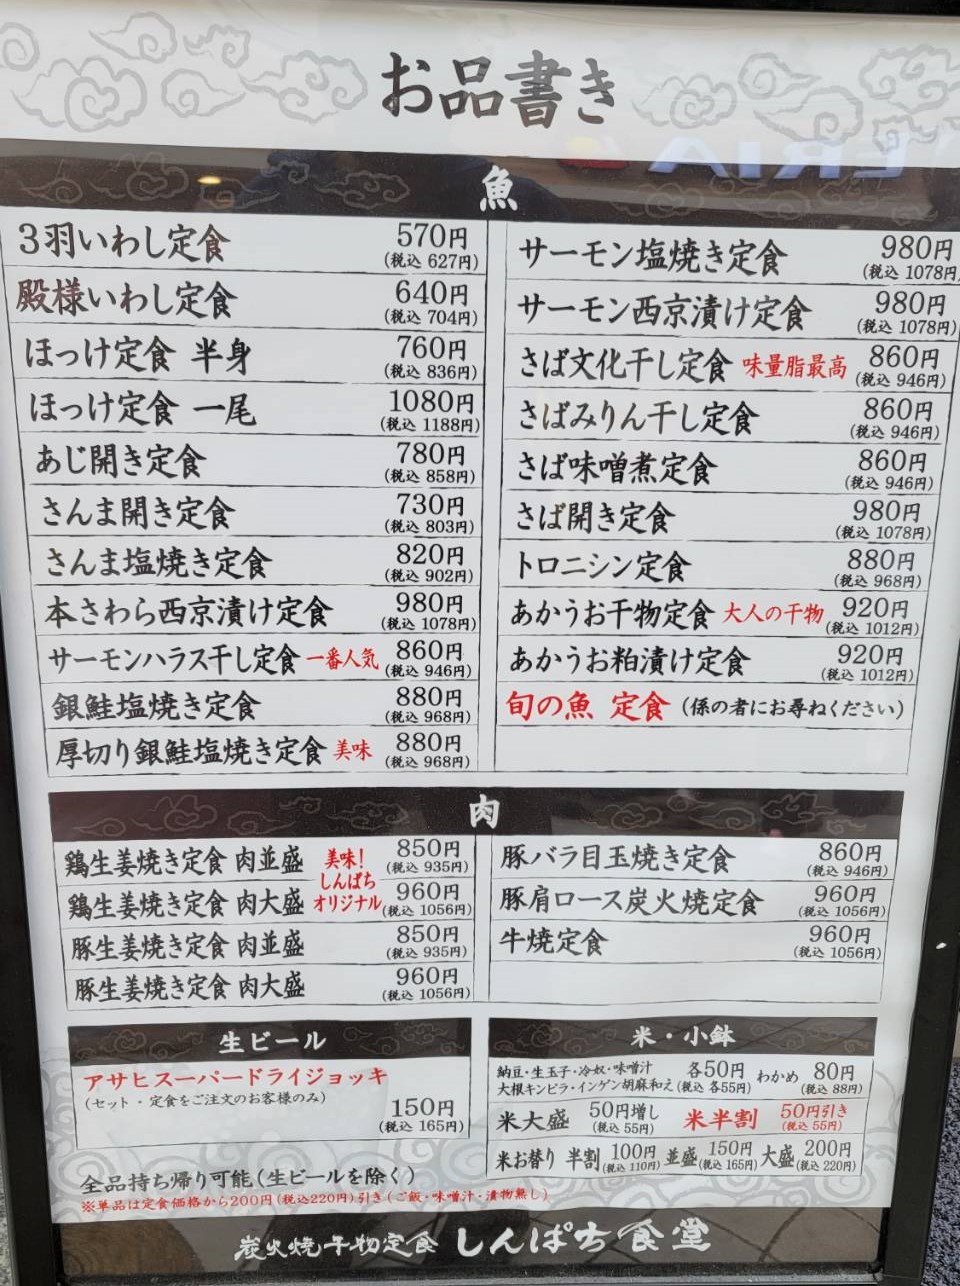 お品書き
魚
3羽いわし定食 570円 (税込 627円)
殿様いわし定食 640円 (税込 704円)
ほっけ定食 半身 760円 (税込 836円)
ほっけ定食 一尾 1080円 (税込 1188円)
あじ開き定食 780円 (税込 858円)
さんま開き定食 730円 (税込 803円)
さんま塩焼き定食 820円 (税込 902円)
本さわら西京漬け定食 980円 (税込 1078円)
サーモンハラス干し定食 一番人気 860円 (税込 946円)
銀鮭塩焼き定食 880円 (税込 968円)
厚切り銀鮭塩焼き定食 美味 880円 (税込 968円)
サーモン塩焼き定食 980円 (税込 1078円)
サーモン西京漬け定食 980円 (税込 1078円)
さば文化干し定食 味量脂最高 860円 (税込 946円)
さばみりん干し定食 860円 (税込 946円)
さば味噌煮定食 860円 (税込 946円)
さば開き定食 980円 (税込 1078円)
トロニシン定食 880円 (税込 968円)
あかうお干物定食 大人の干物 920円 (税込 1012円)
あかうお粕漬け定食 920円 (税込 1012円)
旬の魚 定食 (係の者にお尋ねください)
肉
鶏生姜焼き定食 肉並盛 850円 (税込 935円)
鶏生姜焼き定食 肉大盛 960円 (税込 1056円)
美味!
しんぱち
オリジナル
豚生姜焼き定食 肉並盛 850円 (税込 935円)
豚生姜焼き定食 肉大盛 960円 (税込 1056円)
豚バラ目玉焼き定食 860円 (税込 946円)
豚肩ロース炭火焼定食 960円 (税込 1056円)
牛焼定食 960円 (税込 1056円)
生ビール
アサヒスーパードライジョッキ
(セット・定食をご注文のお客様のみ)
150円
(税込 165円)
米・小鉢
納豆・生玉子・冷奴・味噌汁
大根キンピラ・インゲン胡麻和え
各50円 (税込 各55円)
わかめ 80円 (税込 88円)
米大盛 50円増し (税込 55円) 米半割 50円引き (税込 55円)
米お替り 半割 100円 (税込 110円) 並盛 150円 (税込 165円) 大盛 200円 (税込 220円)
全品持ち帰り可能(生ビールを除く)
※単品は定食価格から200円(税込220円)引き(ご飯・味噌汁・漬物無し)
炭火焼干物定食 しんぱち食堂
ERIA